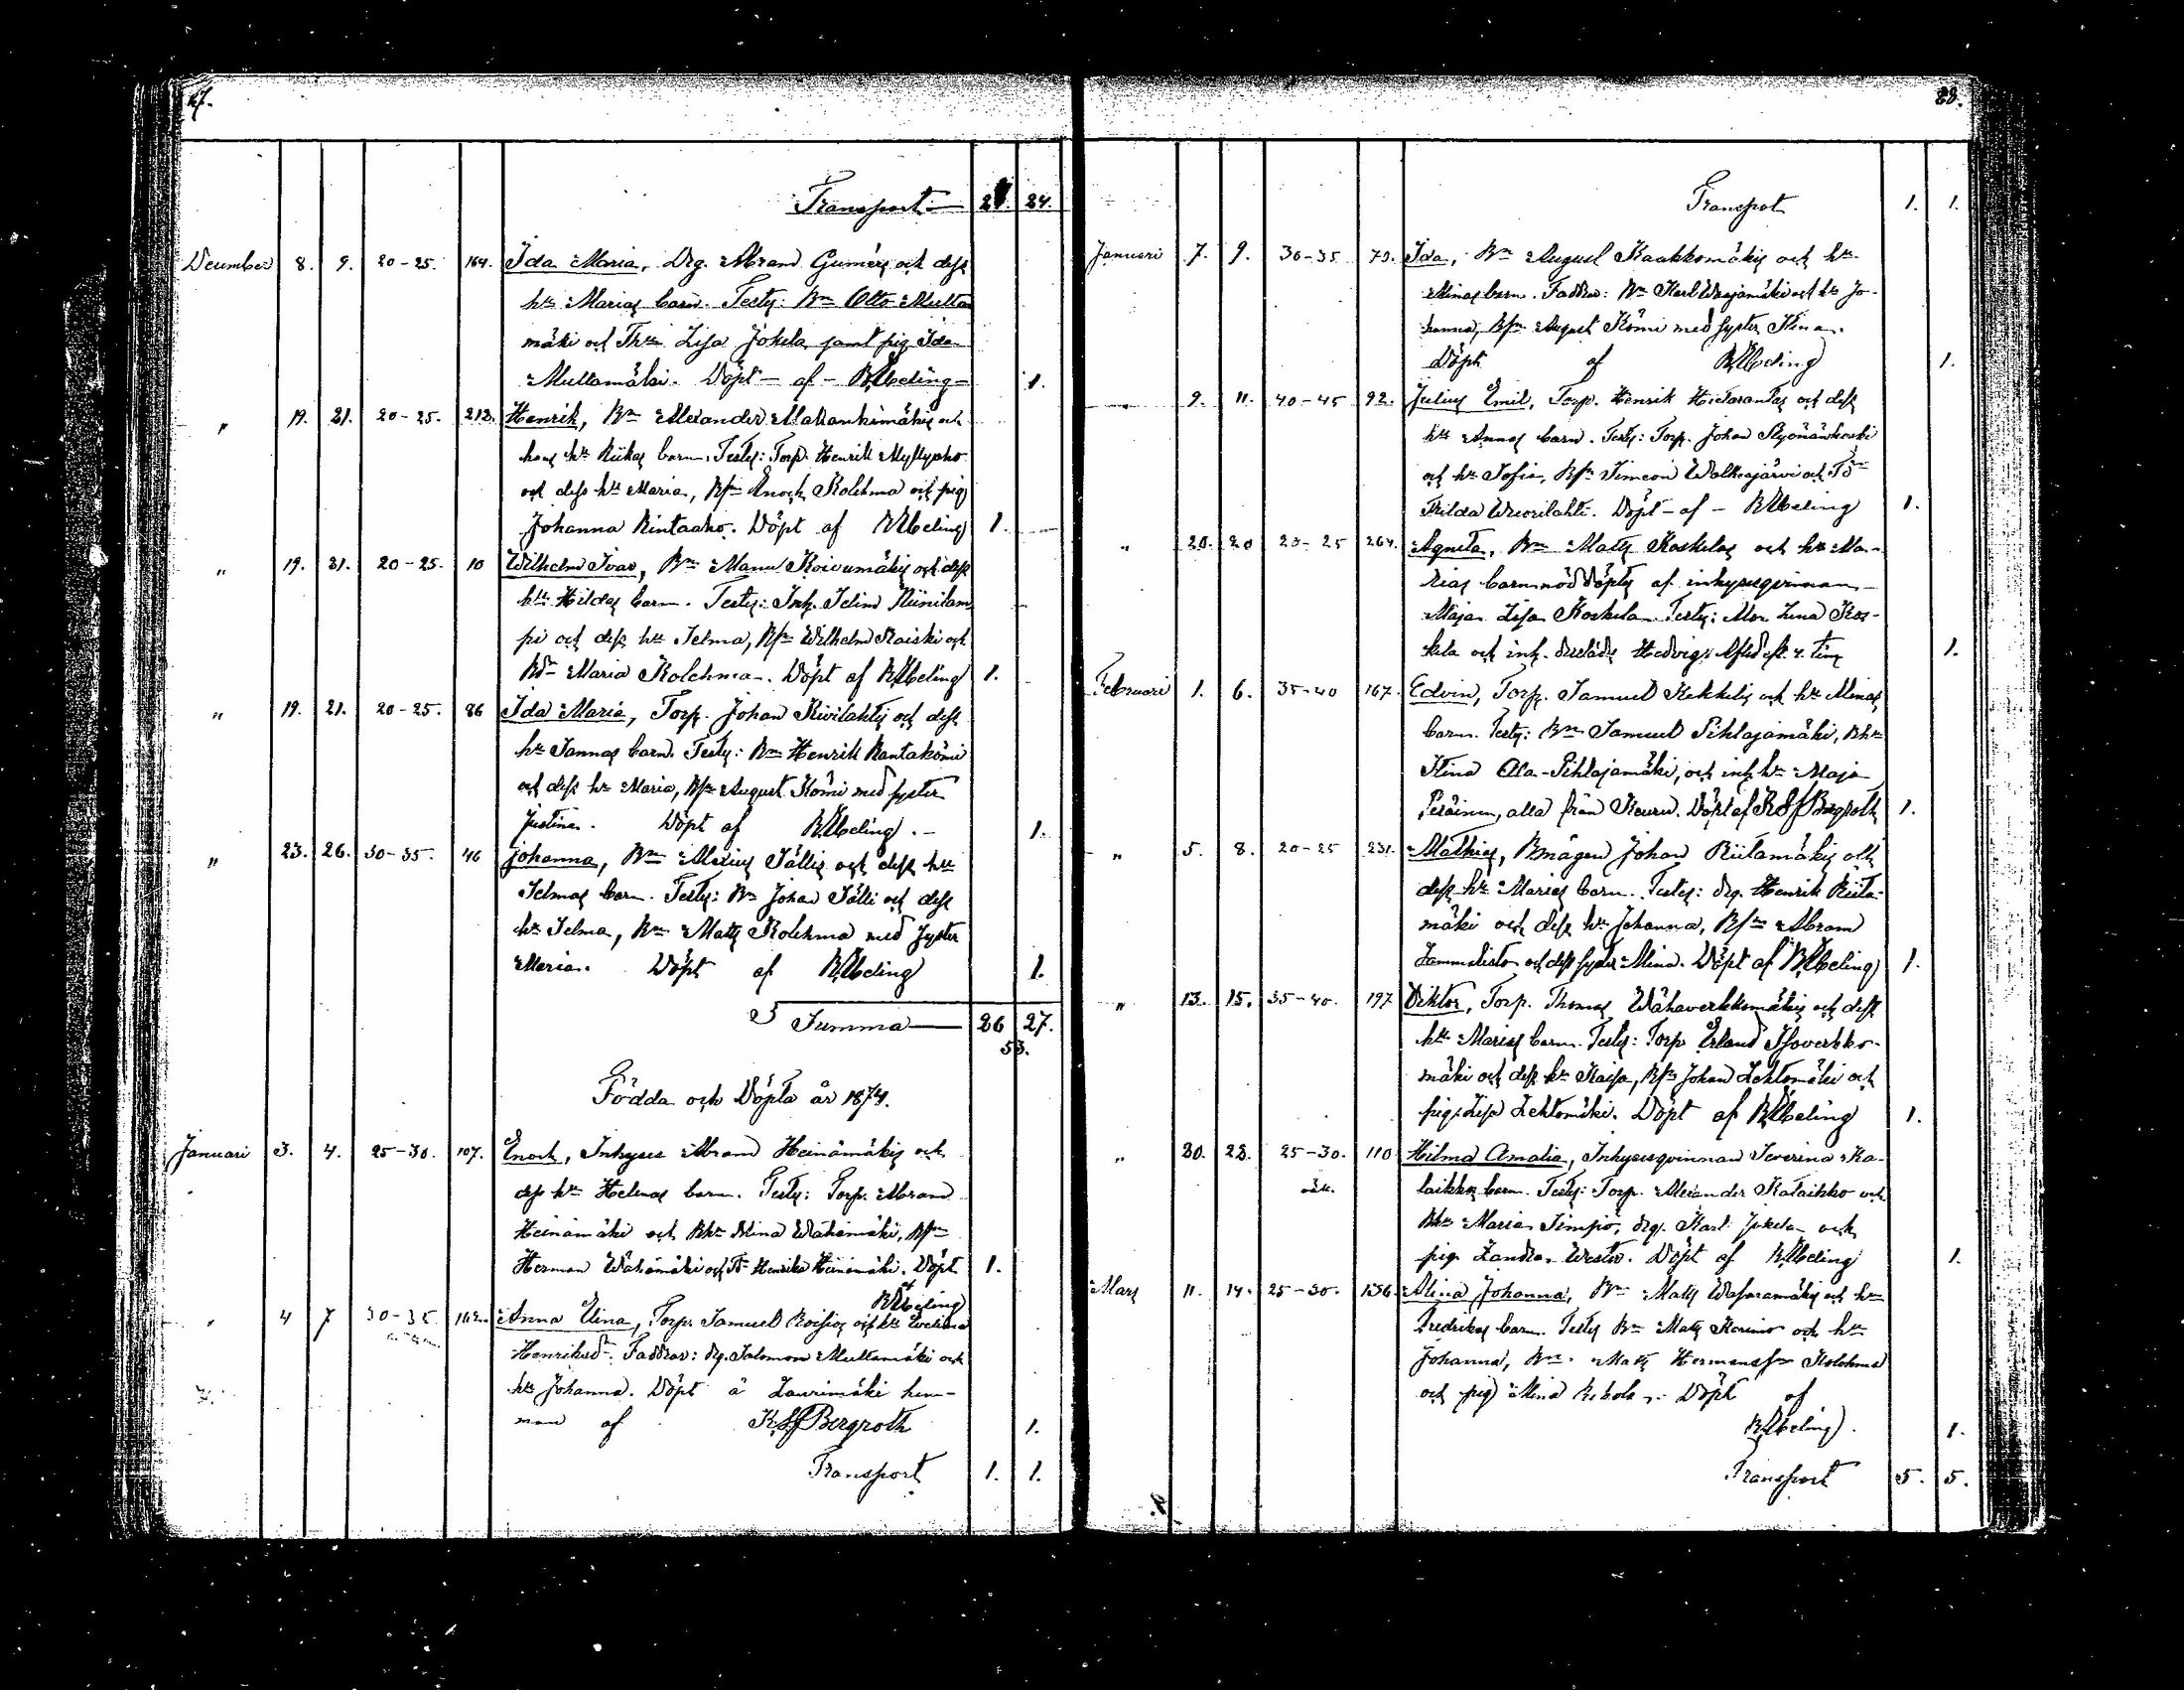 27.
Transport 24.
December 8. 9. 20-25. 164. Ida Maria, Drg. Abram Gumérs och dess
hu Marias barn. Test: Bn Otto Multa
mäki och Thu Lisa Jokela samt pig. Ida
Multamäki. Döpt af 1.
" 19. 21. 20-25. 212. Henrik, Bn Alexander och
hans hu Riikas barn. Test: Torp. Henrik Myllyaho
och dess hu Maria, Bsn Enoch Kolehma och pig
Johanna Rintaaho. Döpt af 1.
" 19. 21. 20-25. 10 Wilhelm Ivar, Bn Manu Koivumäkis och dess
hu Hildas barn. Test: Inh. Selim Niinilam
pi och dess hu Selma, Bsn Wilhelm Raiski och
Bdr Maria Kolehma. Döpt af 1.
" 19. 21. 20-25. 86 Ida Maria, Torp. Johan Kivilahtis och dess
hu Sannas barn. Test: Bn Henrik Rantakömi
och dess hu Maria, Bsn August Kömi med syster
Justina. Döpt af 1.
" 23. 26. 30-35. 46 Johanna, Bn Alexius Sällis och dess hu
Selmas barn. Test: Bn Johan Sälli och dess
hu Selma, Bn Matts Kolehma med syster
Maria. Döpt af 1.
Summa 26 27.
53.
Födda och Döpta år 1874.
Januari 3. 4. 25-30. 107. Enoch, Inhyses Abram Heinämäkis och
dess hu Helenas barn. Test: Torp. Abram
Heinämäki och Bhu Wähämäki, Bsn
Herman Wähämäki och Td Henrika Heinämäki. Döpt 1.
af
" 4 7 30-35 162. Anna Elina, Torp. Samuel och hu
Henriksdr. Faddrar: dg. Salomon Multamäki och
hu Johanna. Döpt å Laurimäki hem-
man af K. Bergroth 1.
Transport 1. 1.
28.
Transpot 1. 1.
Januari 7. 9. 30-35 70. Ida, Bn August Kaakkomäkis och hu
Minas barn. Faddrar: Bn Karl och hu Jo-
hanna, Bsn August Kömi med syster Stina.
Döpt af 1.
9. 11. 40-45 92. Julius Emil, Torp. Henrik Hietarantas och dess
hu Annas barn. Test: Torp. Johan
och hu Sofia, Bsn Simeon Walkeajärvi och Td
Hilda Wuorilahti. Döpt af 1.
" 20. 20 20-25 264. Agneta, Bn Matts Koskelas och hu Ma-
rias barn nöddöpts af inhysesqvinnan
Maja Lisa Koskela. Test: Mor Lena Kos-
kela och inh. Hedvig. 1.
Februari 1. 6. 35-40 167. Edvin, Torp. Samuel Kekkilis och hu Minas
barn. Test: Bn Samuel Pihlajamäki, Bhu
Stina Ala-Pihlajamäki, och inh hu Maja
Peräinen, alla från Keuru. Döpt af K Bergroth 1.
" 5. 8. 20-25 231. Mathias, Bmågen Johan Riitamäkis och
dess hu Marias barn. Test: dg. Henrik Riita-
mäki och dess hu Johanna, Bsn Abram
Lammilisto och dess syster Mina. Döpt af 1.
" 13. 15. 35-40. 197 Viktor, Torp. Thomas Wähäverkkomäkis och dess
hu Marias barn. Test: Torp Erland Isoverkko-
mäki och dess hu Kaisa, Bsn Johan Lehtomäki och
pig. Lisa Lehtomäki. Döpt af 1.
" 20. 22. 25-30. 110 Hilma Amalia, Inhysesqvinnan Severina Ka-
oäk. laikkos barn. Test: Torp. Alexander Kalaikko och
Bhu Maria Simpio, drg. Karl Jokela och
pig. Sandra Wester. Döpt af 1.
Mars 11. 14. 25-30. 136. Mina Johanna, Bn Matts och hu
Fredrikas barn. Test Bn Matts och hu
Johanna, Bn. Matts Hermansson Kolehma
och pig Mina Rekola. Döpt af
1.
Transport 5. 5.